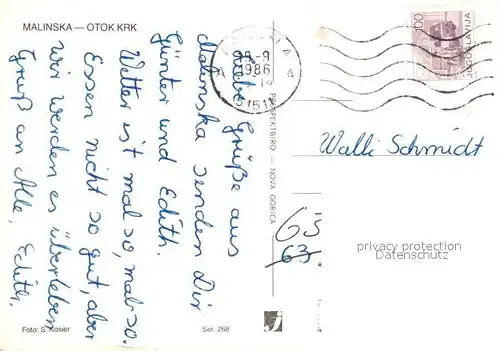 MALINSKA — OTOK KRK
Liebe Grüße aus
Malinska senden Dir
Günter und Edith.
Wetter ist mal so, mal so.
Essen nicht so gut, aber
wir werden es überleben
Gruß an Alle, Edith.
Foto: S. Kosier
Ser. 268
PROSPEKTBIRO — NOVA GORICA
-9
1986
14
5151
JUGOSLAVIJA
Walli Schmidt
63
63
privacy protection
Datenschutz